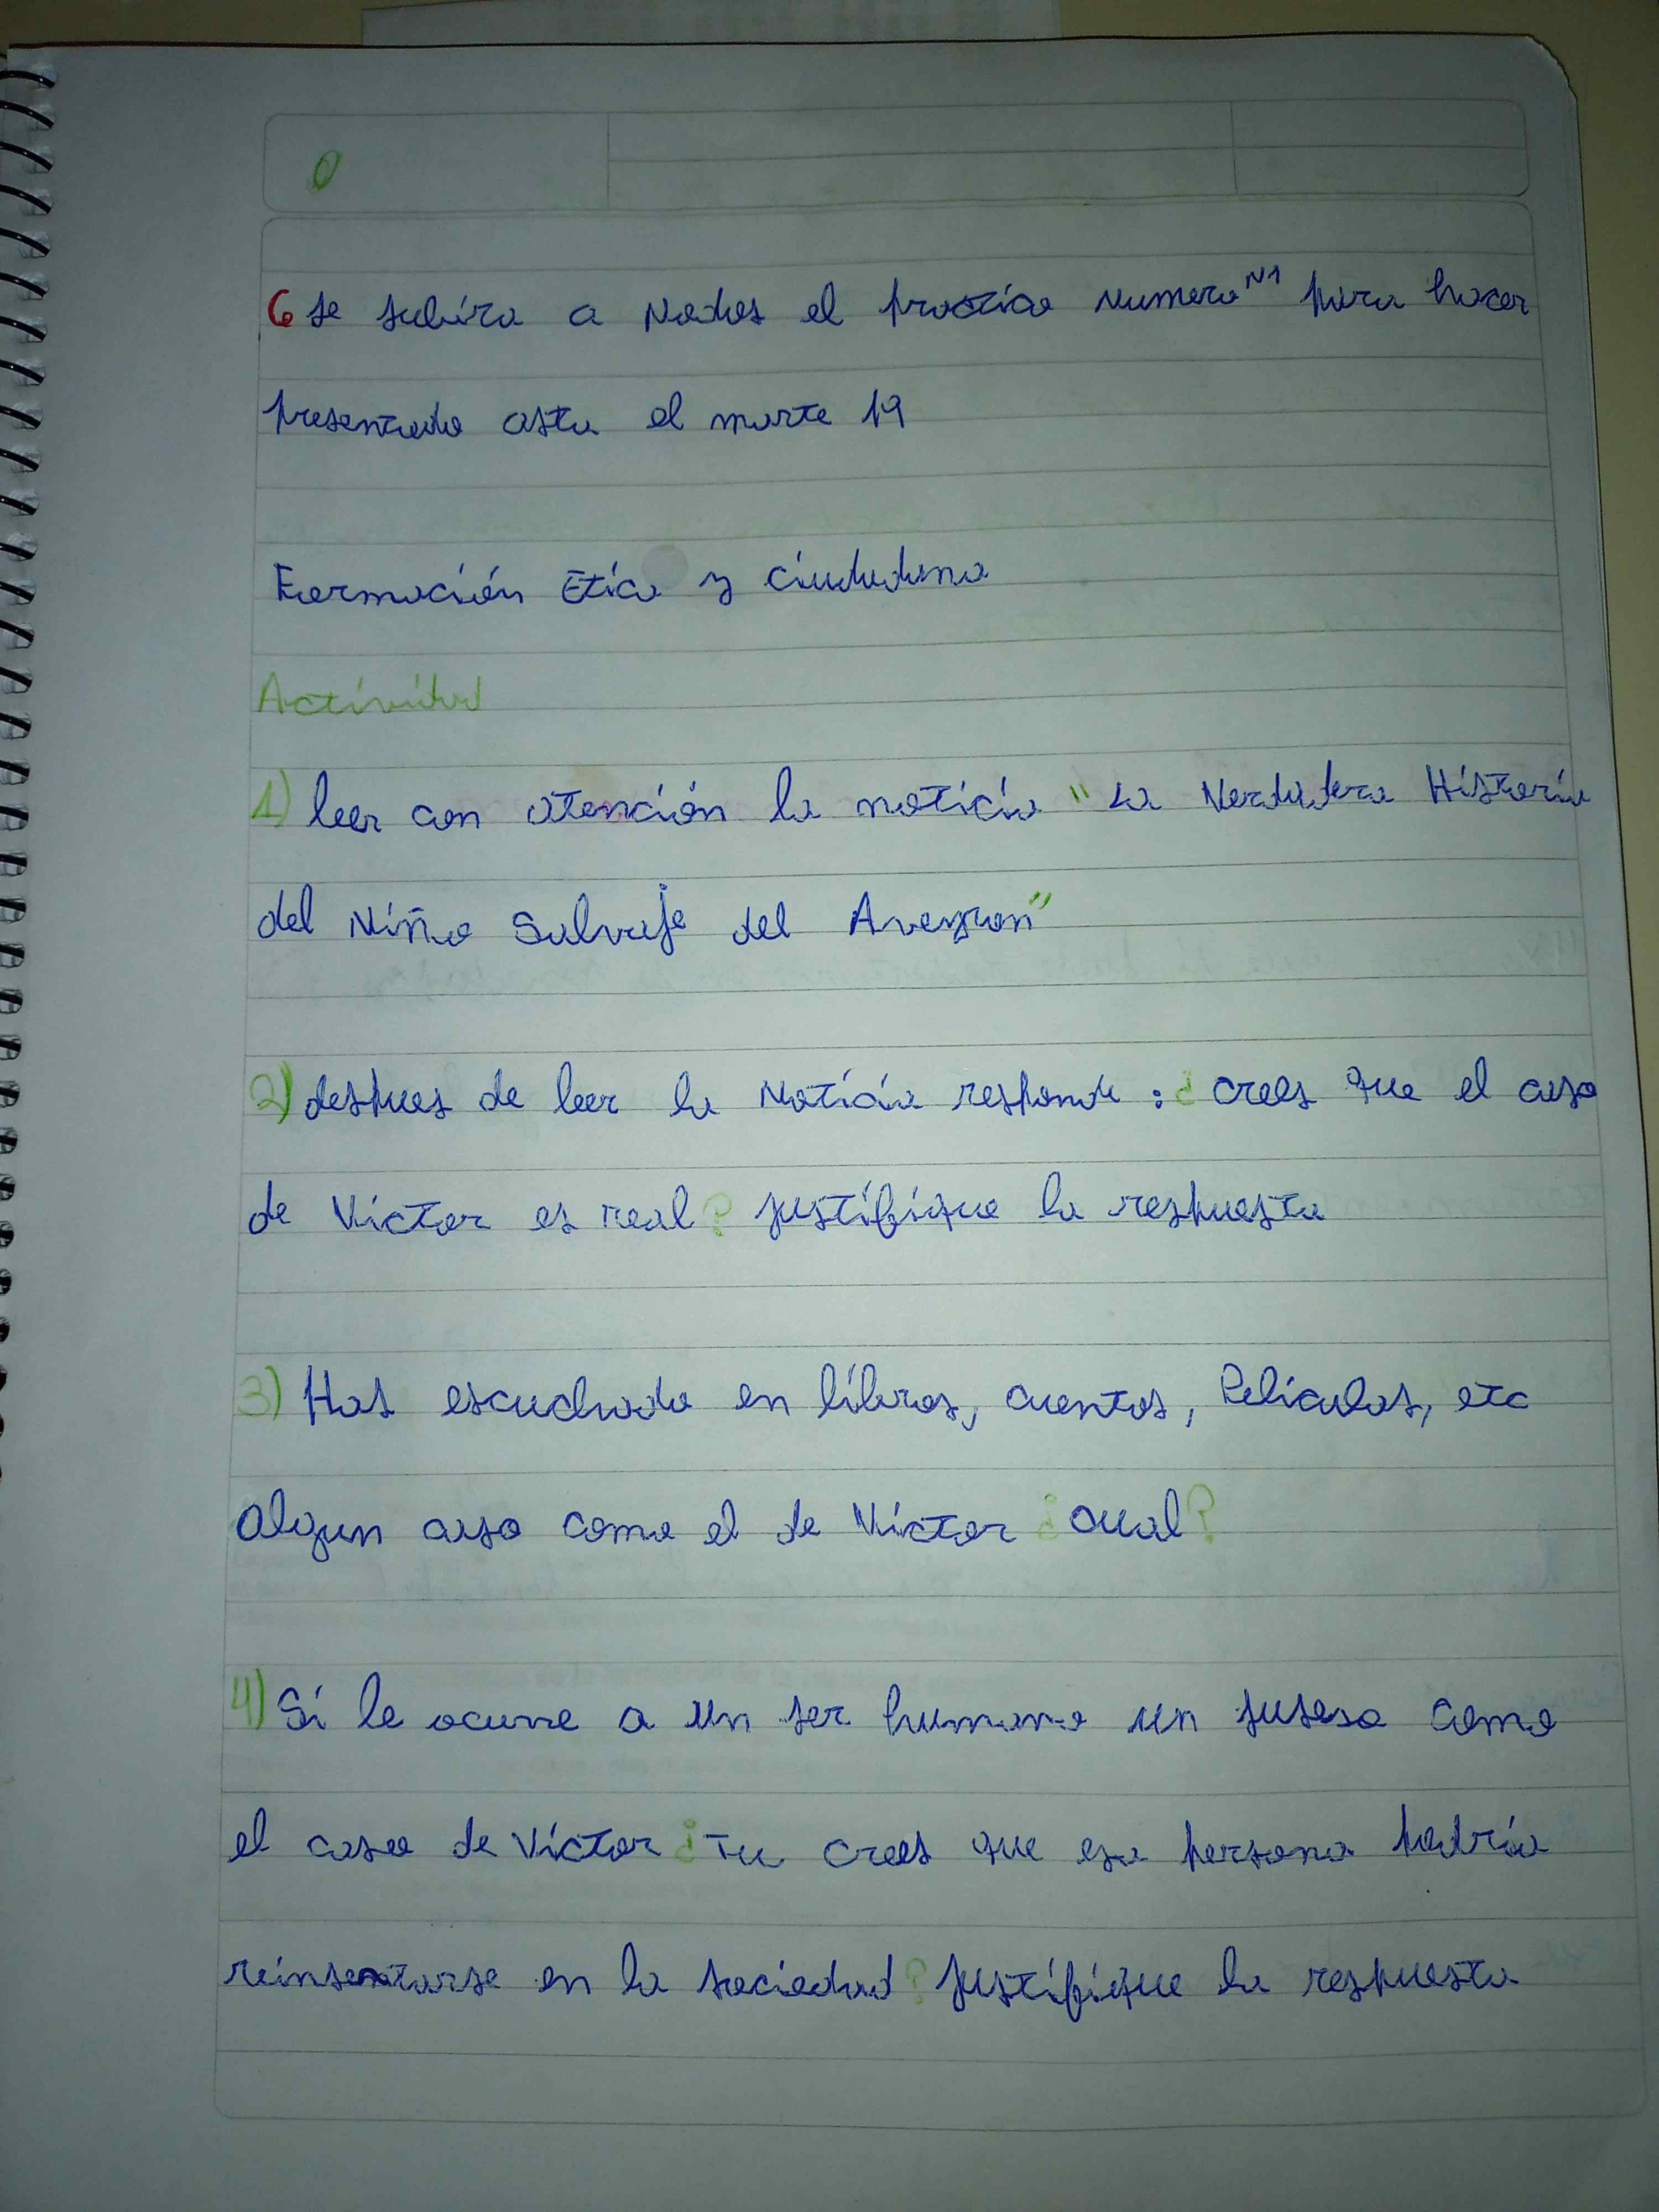 0
6 se subira a Nodos el practico Numero N1 para hacer
presentado asta el marte 19
Formación Etica y ciudadana
Actividad
1) leer con atención la noticia " La Verdadera Historia
del Niño Salvaje del Aveyron"
2) despues de leer la Noticia responde : ¿ crees que el caso
de Victor es real? justifique la respuesta
3) Has escuchado en libros, cuentos, Peliculas, etc
algun caso como el de Victor ¿ cual?
4) Si le ocurre a un ser humano un suseso como
el caso de Victor ¿ Tu crees que esa persona podria
reinsertarse en la sociedad? justifique la respuesta